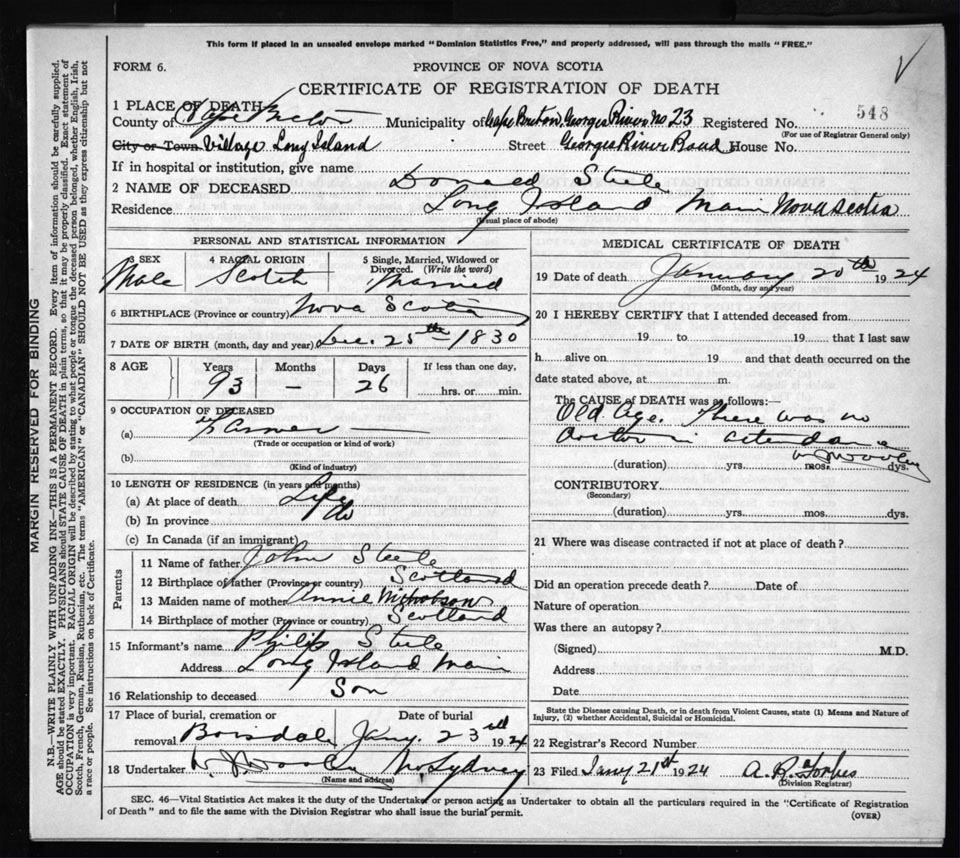 This form if placed in an unsealed envelope marked "Dominion Statistics Free," and properly addressed, will pass through the mails "FREE."
FORM 6.
PROVINCE OF NOVA SCOTIA
CERTIFICATE OF REGISTRATION OF DEATH
1 PLACE OF DEATH
County of Cape Breton Municipality of Cape Breton, Georges River No 23 Registered No. 548
(For use of Registrar General only)
City or Town Village Long Island Street Georges River Road House No.
If in hospital or institution, give name
2 NAME OF DECEASED Donald Steele
Residence Long Island Main Nova Scotia
(Usual place of abode)
PERSONAL AND STATISTICAL INFORMATION
3 SEX 4 RACIAL ORIGIN 5 Single, Married, Widowed or Divorced. (Write the word)
Male Scotch Married
6 BIRTHPLACE (Province or country) Nova Scotia
7 DATE OF BIRTH (month, day and year) Dec. 25th 1830
8 AGE Years Months Days If less than one day,
93 — 26 hrs. or min.
9 OCCUPATION OF DECEASED
(a) Farmer
(Trade or occupation or kind of work)
(b)
(Kind of industry)
10 LENGTH OF RESIDENCE (in years and months)
(a) At place of death Life
(b) In province do
(c) In Canada (if an immigrant)
Parents
11 Name of father John Steele
12 Birthplace of father (Province or country) Scotland
13 Maiden name of mother Annie Nicholson
14 Birthplace of mother (Province or country) Scotland
15 Informant's name Philip Steele
Address Long Island Main
16 Relationship to deceased Son
17 Place of burial, cremation or removal Date of burial
Boisdale Jany. 23rd 1924
18 Undertaker W. J. Dooley No Sydney
(Name and address)
MEDICAL CERTIFICATE OF DEATH
19 Date of death January 20th 1924
(Month, day and year)
20 I HEREBY CERTIFY that I attended deceased from
19 to 19 that I last saw
h alive on 19 and that death occurred on the
date stated above, at m.
The CAUSE of DEATH was as follows:—
Old Age. There was no
doctor in attendance
W J Dooley
(duration) yrs. mos. dys.
CONTRIBUTORY
(Secondary)
(duration) yrs. mos. dys.
21 Where was disease contracted if not at place of death?
Did an operation precede death? Date of
Nature of operation
Was there an autopsy?
(Signed) M.D.
Address
Date
State the Disease causing Death, or in death from Violent Causes, state (1) Means and Nature of
Injury, (2) whether Accidental, Suicidal or Homicidal.
22 Registrar's Record Number
23 Filed Jany 21st 1924 A. R. Forbes
(Division Registrar)
SEC. 46—Vital Statistics Act makes it the duty of the Undertaker or person acting as Undertaker to obtain all the particulars required in the "Certificate of Registration
of Death" and to file the same with the Division Registrar who shall issue the burial permit.
(OVER)
MARGIN RESERVED FOR BINDING
N.B.—WRITE PLAINLY WITH UNFADING INK—THIS IS A PERMANENT RECORD. Every item of information should be carefully supplied.
AGE should be stated EXACTLY. PHYSICIANS should STATE CAUSE OF DEATH in plain terms, so that it may be properly classified. Exact statement of
OCCUPATION is very important. RACIAL ORIGIN will be described by stating to what people or tongue the deceased person belonged, whether English, Irish,
Scotch, French, German, Russian, Ruthenian, etc. The terms "AMERICAN" or "CANADIAN" SHOULD NOT BE USED as they express citizenship but not
a race or people. See instructions on back of Certificate.